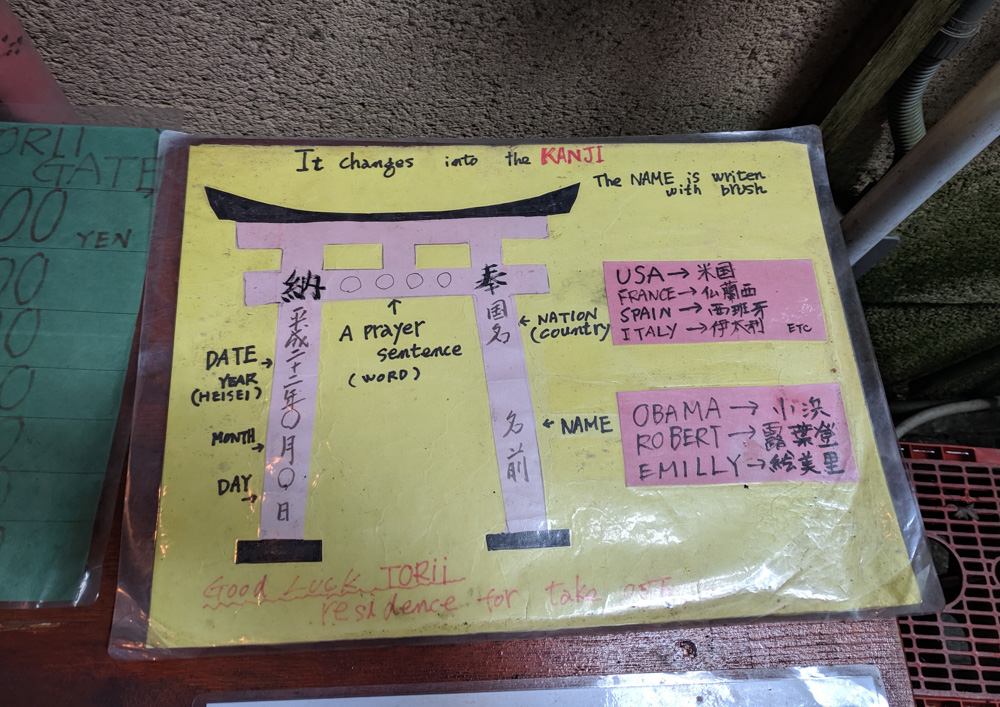 ORII
GATE
00 YEN
00
It changes into the KANJI
The NAME is writen
with brush
納 ○○○○ 奉
平成二十二年〇月〇日
国名
名前
A Prayer
sentence
(WORD)
DATE
YEAR
(HEISEI)
MONTH
DAY
NATION
(country)
NAME
USA→米国
FRANCE→仏蘭西
SPAIN→西班牙
ITALY→伊太利 ETC
OBAMA→小浜
ROBERT→露葉登
EMILLY→絵美里
Good Luck TORii
residence for take